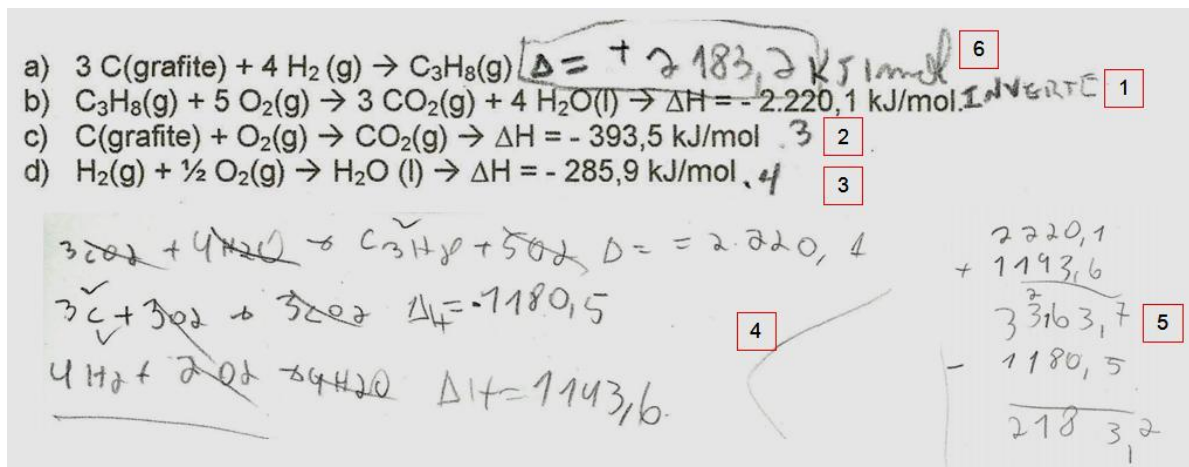 a) 3 C(grafite) + 4 H₂ (g) → C₃H₈(g) Δ = + 2183,2 KJ/mol 6
b) C₃H₈(g) + 5 O₂(g) → 3 CO₂(g) + 4 H₂O(l) → ΔH = - 2.220,1 kJ/mol. INVERTE 1
c) C(grafite) + O₂(g) → CO₂(g) → ΔH = - 393,5 kJ/mol .3 2
d) H₂(g) + ½ O₂(g) → H₂O (l) → ΔH = - 285,9 kJ/mol .4 3
3CO2 + 4H2O → C3H8 + 5O2 Δ = = 2.220,1
3C + 3O2 → 3CO2 ΔH = -1180,5
4H2 + 2O2 → 4H2O ΔH = 1143,6.
4
2220,1
+ 1143,6
3363,7 5
- 1180,5
2183,2